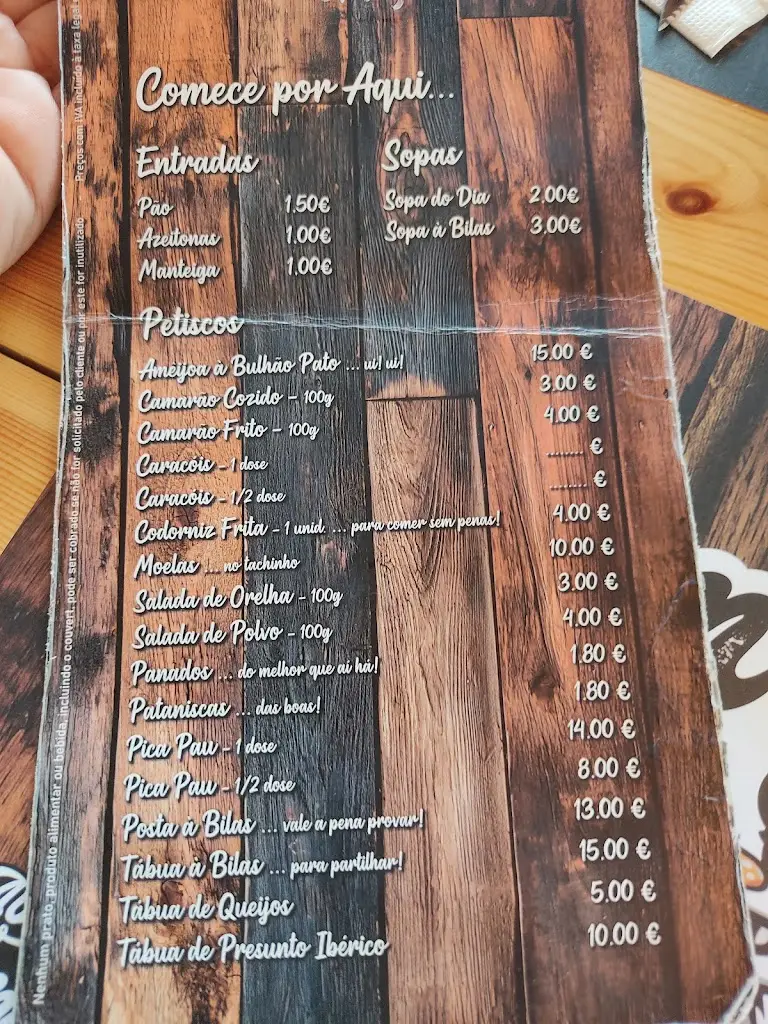 Comece por Aqui...
Entradas
Pão 1.50€
Azeitonas 1.00€
Manteiga 1.00€
Sopas
Sopa do Dia 2.00€
Sopa à Bilas 3.00€
Petiscos
Ameijoa à Bulhão Pato ... ui! ui! 15.00 €
Camarão Cozido - 100g 3.00 €
Camarão Frito - 100g 4.00 €
Caracóis - 1 dose ........ €
Caracóis - 1/2 dose ........ €
Codorniz Frita - 1 unid. ... para comer sem penas! 4.00 €
Moelas ... no tachinho 10.00 €
Salada de Orelha - 100g 3.00 €
Salada de Polvo - 100g 4.00 €
Panados ... do melhor que aí há! 1.80 €
Pataniscas ... das boas! 1.80 €
Pica Pau - 1 dose 14.00 €
Pica Pau - 1/2 dose 8.00 €
Posta à Bilas ... vale a pena provar! 13.00 €
Tábua à Bilas ... para partilhar! 15.00 €
Tábua de Queijos 5.00 €
Tábua de Presunto Ibérico 10.00 €
Nenhum prato, produto alimentar ou bebida, incluindo o couvert, pode ser cobrado se não for solicitado pelo cliente ou por este for inutilizado
Preços com IVA incluído à taxa legal